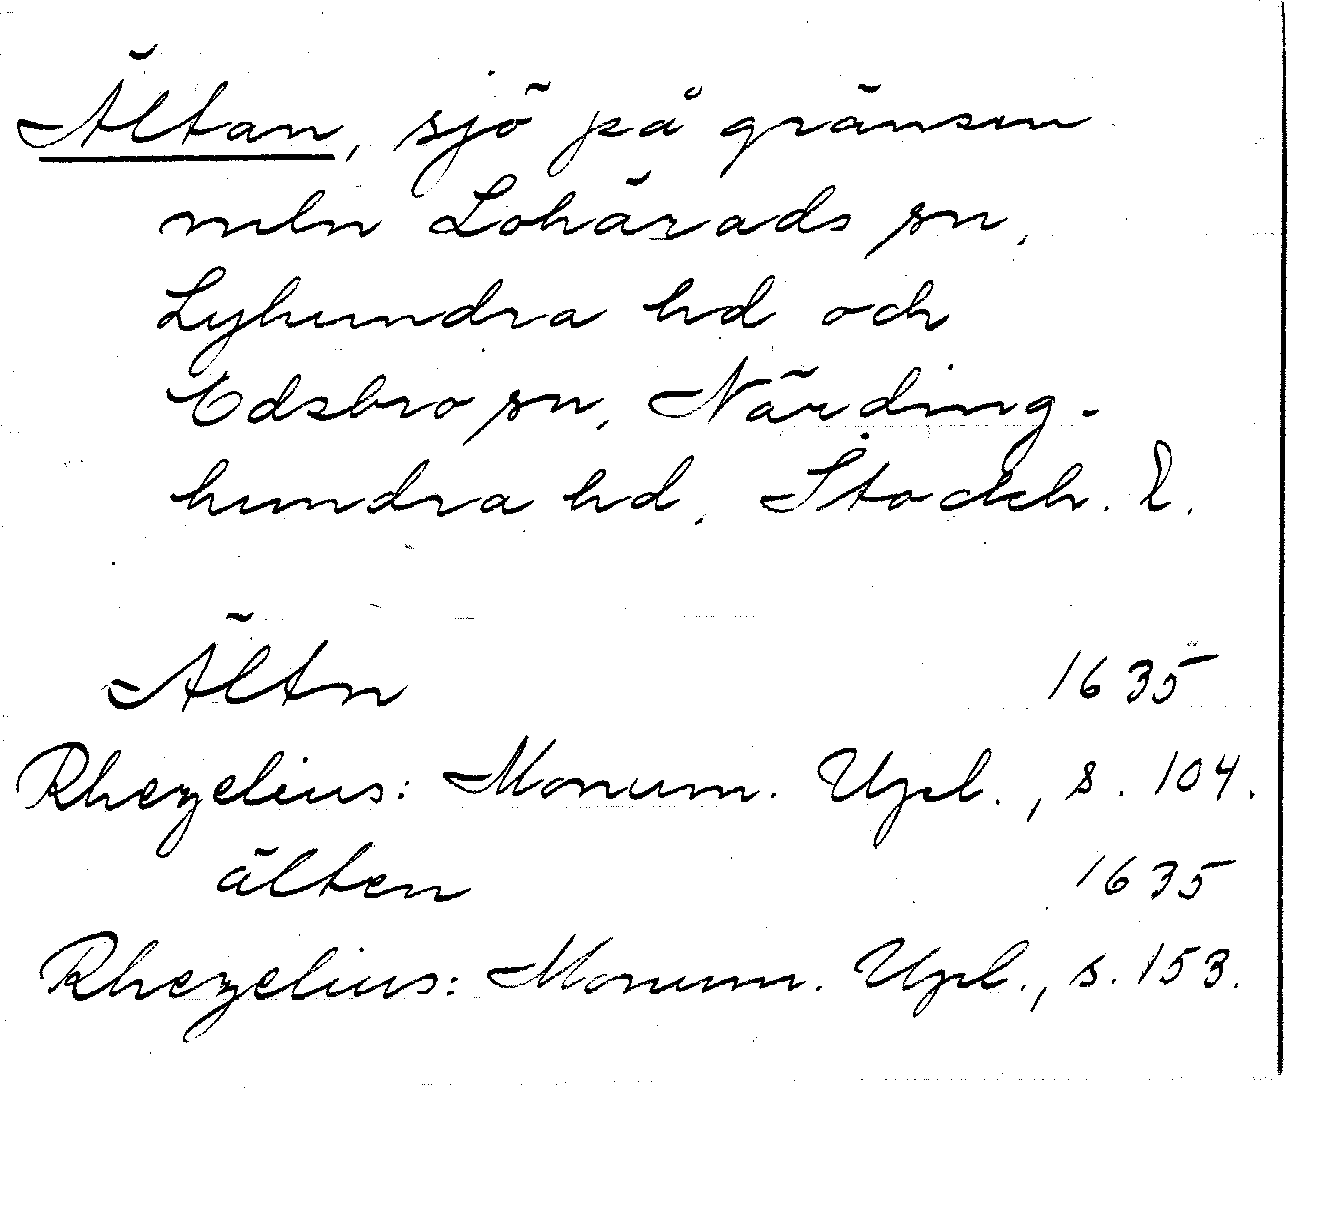 Ältan, sjö på gränsen
mln Lohärads sn,
Lyhundra hd och
Edsbro sn, Närding-
hundra hd. Stockh. l.
Ältn 1635
Rhezelius: Monum. Upl., s. 104.
älten 1635
Rhezelius: Monum. Upl., s. 153.